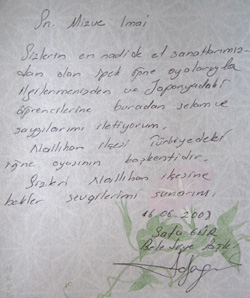 Sn. Mizue Imai
Sizlerin en nadide el sanatlarımız-
dan olan ipek iğne oyalarıyla
ilgilenmenizden ve Japonyadaki
öğrencilerine buradan selam ve
saygılarımı iletiyorum.
Nallıhan ilçesi Türkiyedeki
iğne oyasının başkentidir.
Sizleri Nallıhan ilçesine
bekler sevgilerimi sunarım.
16.06.2003
Belediye Bşk.